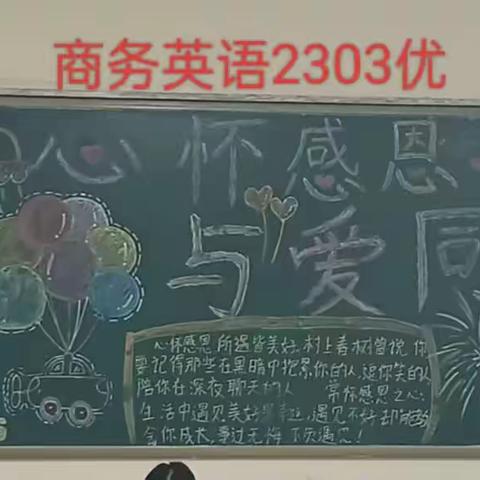 商务英语2303优
心怀感恩
与爱同
心怀感恩,所遇皆美好.村上春树曾说,你
要记得那些在黑暗中抱紧你的人,逗你笑的人
陪你在深夜聊天的人 常怀感恩之心
生活中遇见美好是幸运,遇见不好却能
你成长,事过无悔 下次遇见!